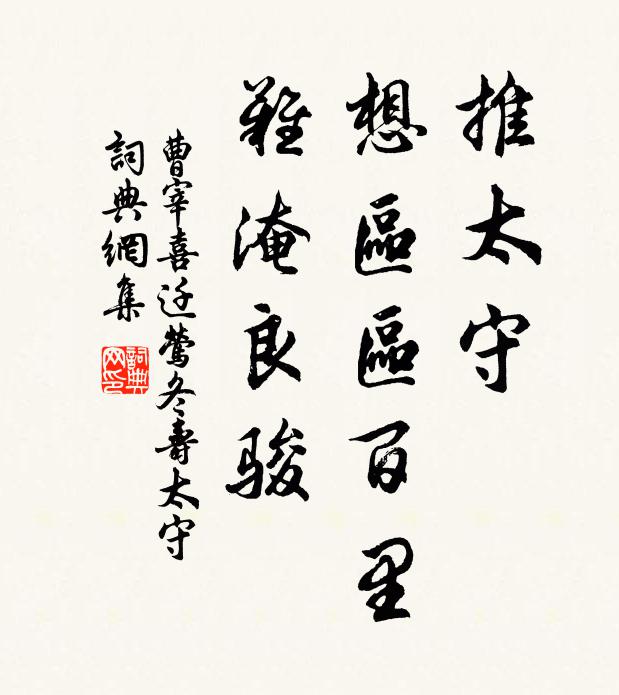 推太守
想區區百里
難淹良駿
曹宰喜迁鶯冬壽太守
詞典網集
詞典网印